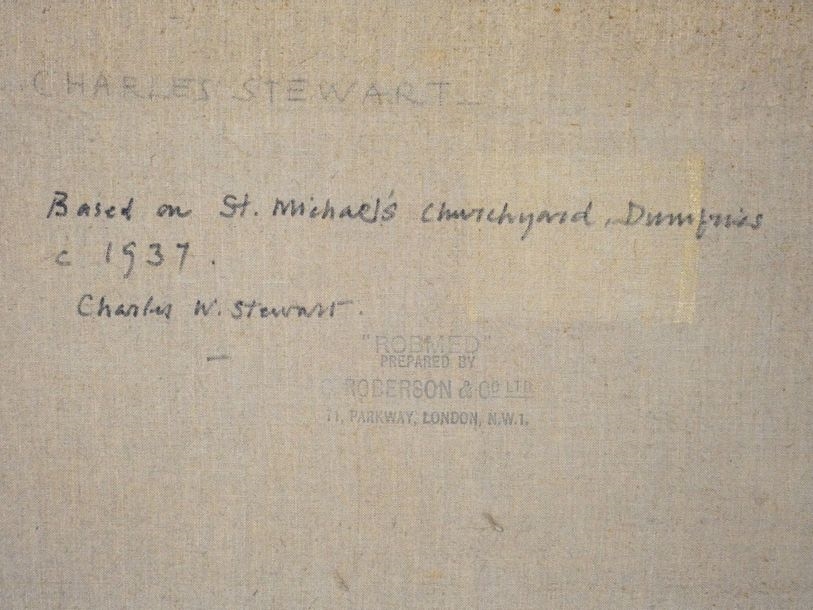 CHARLES STEWART
Based on St. Michael's Churchyard, Dumfries
c 1937.
Charles W. Stewart.
"ROBMED"
PREPARED BY
C. ROBERSON & CO LTD
71, PARKWAY, LONDON, N.W.1.